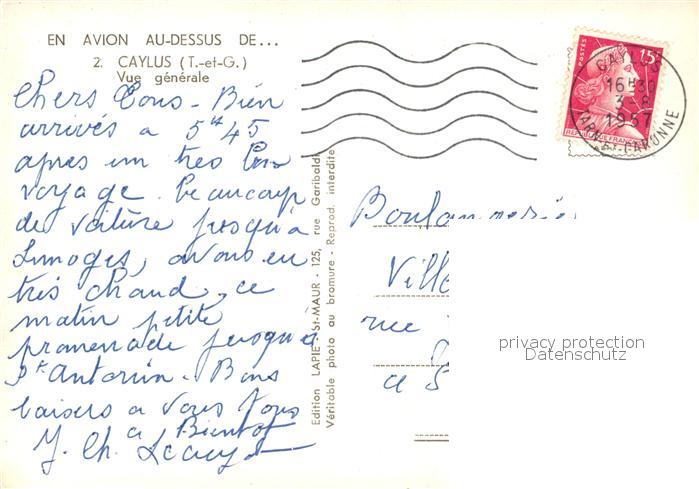 EN AVION AU-DESSUS DE...
2. CAYLUS (T.-et-G.)
Vue générale
Chers Tous - Bien
arrivés a 5h45
apres un tres bon
voyage. beaucoup
de voiture jusqu'à
Limoges, avons eu
très chaud, ce
matin petite
promenade jusqu'à
St Antonin. Bons
baisers a Vous Tous
a Bientôt
J. Ch.
Edition LAPIE - St-MAUR - 125, rue Garibaldi
Véritable photo au bromure - Reprod. interdite
POSTES
15F
REPUBLIQUE FRANÇAISE
CAYLUS
16H30
3-8
1957
TARN-ET-GARONNE
Ville
rue
a S
privacy protection
Datenschutz